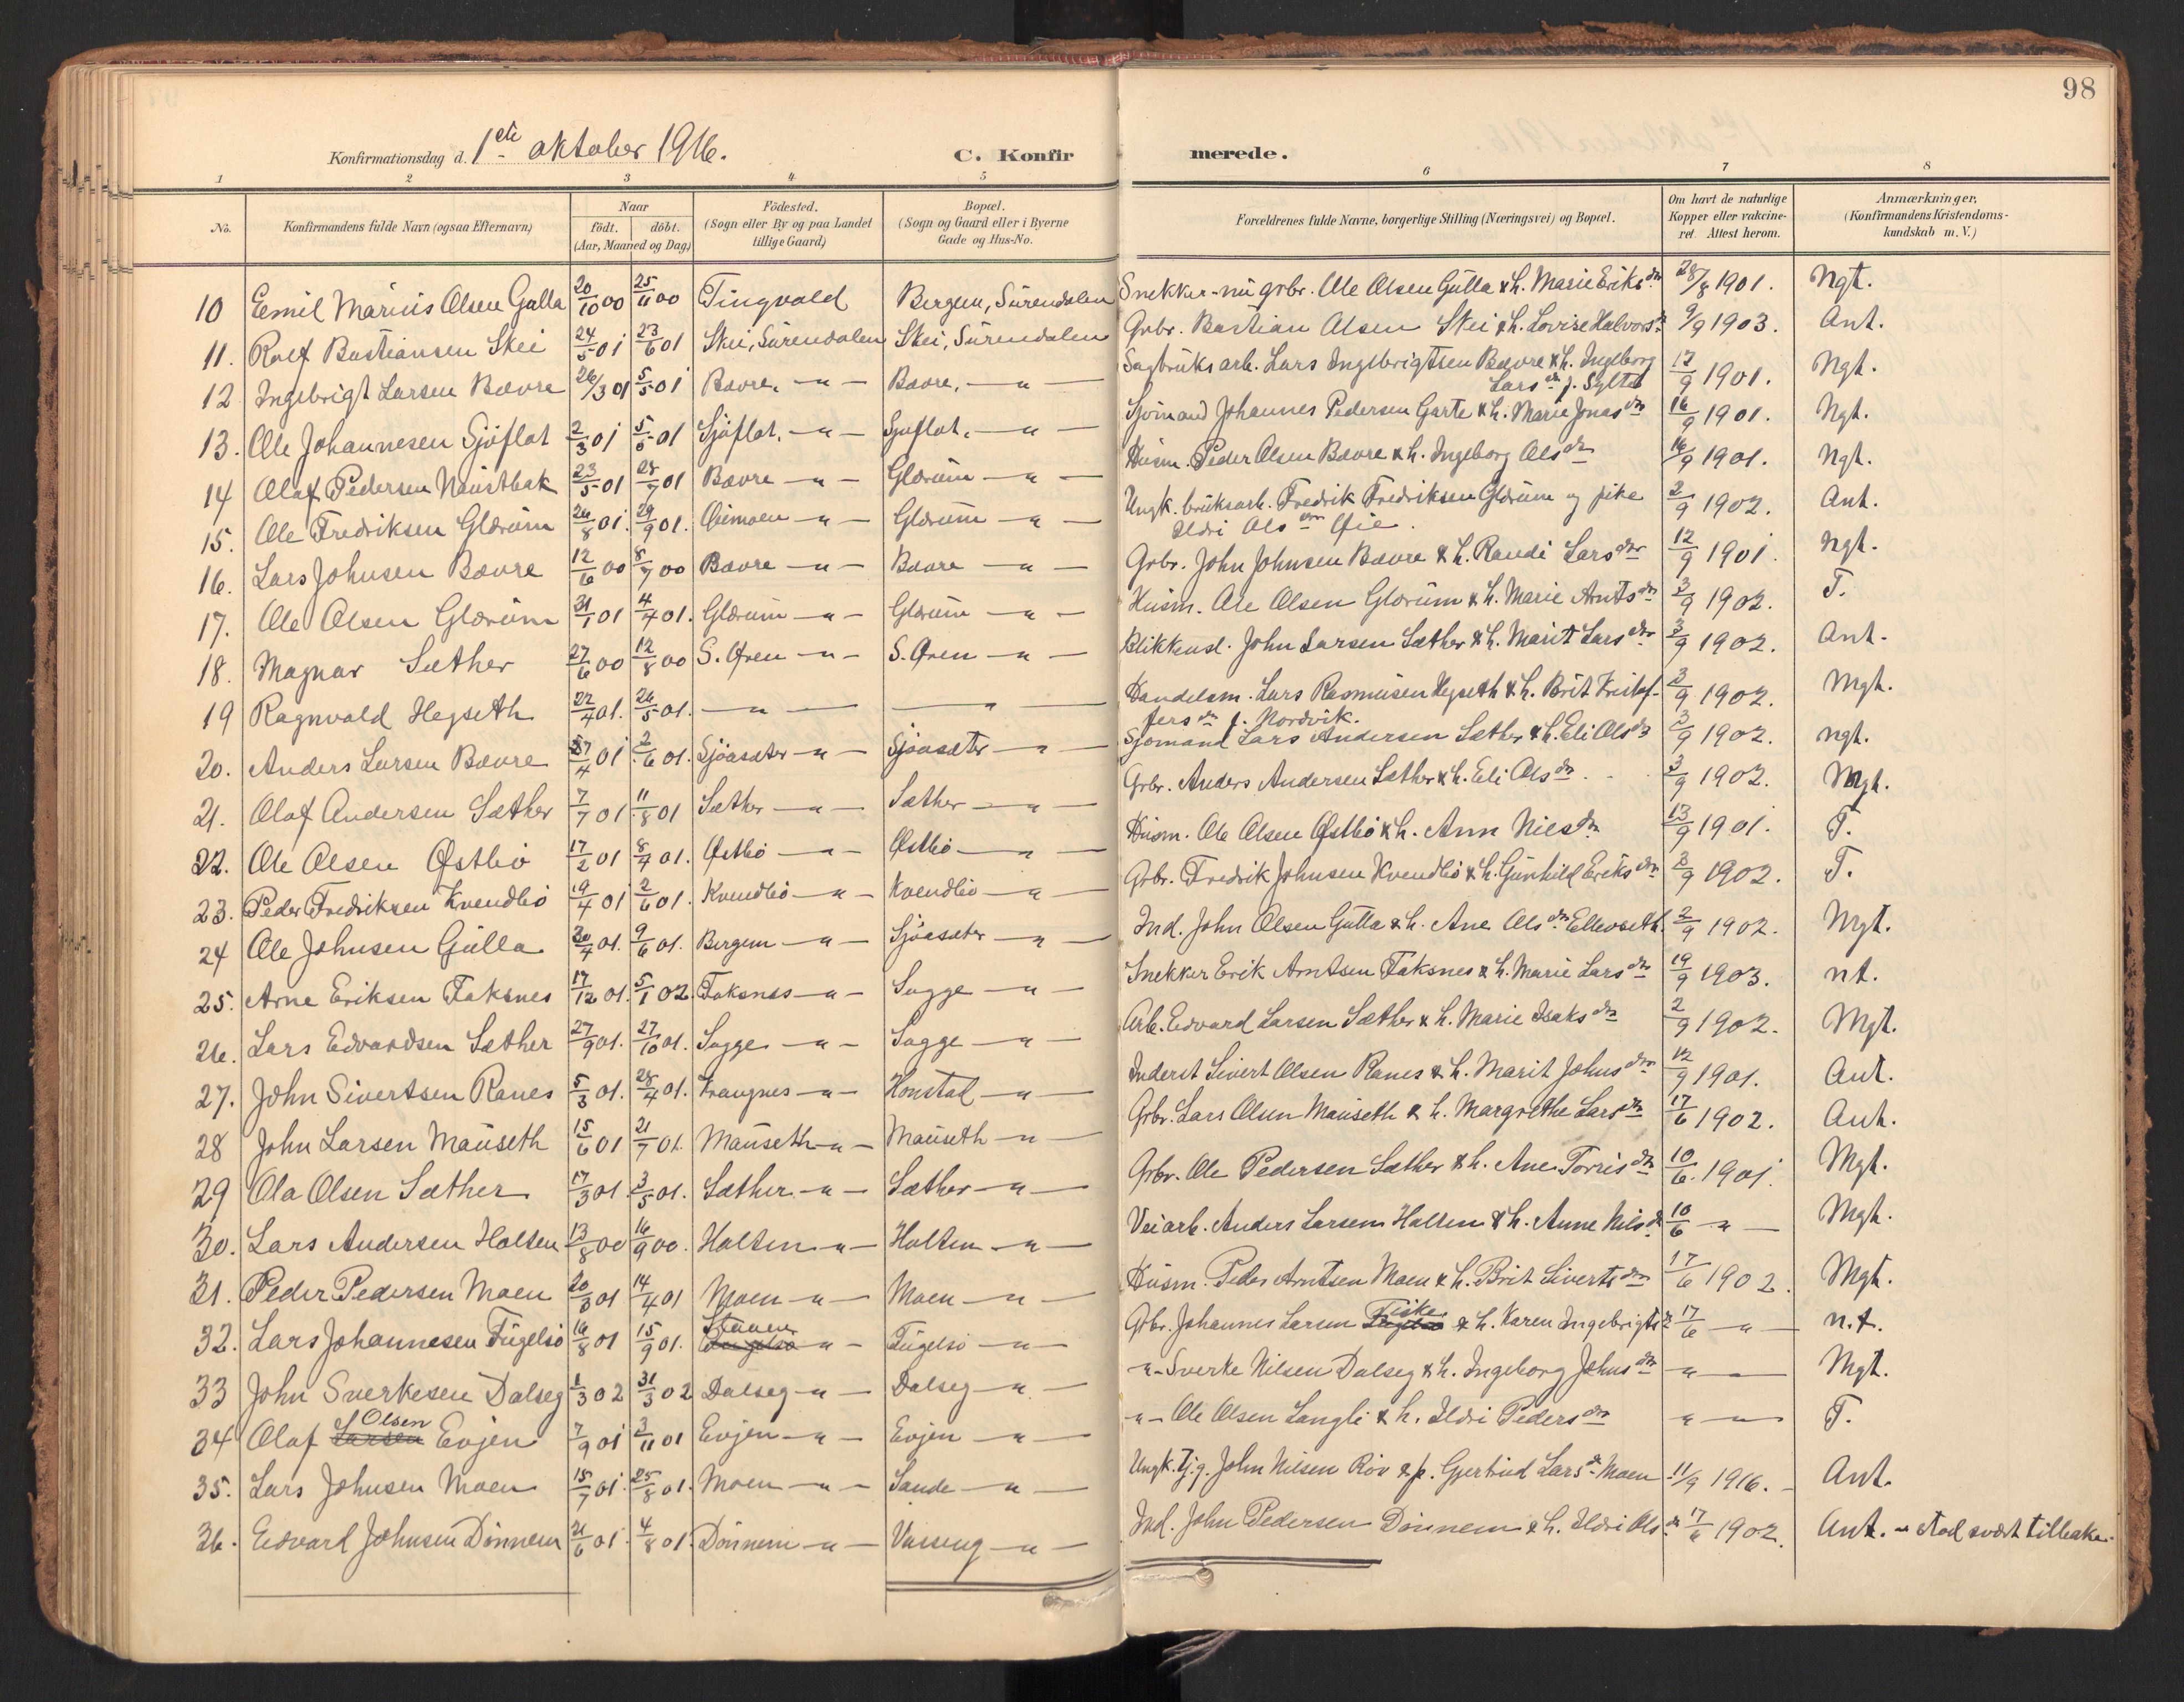 98
Konfirmationsdag d. 1ste oktober 1916. C. Konfirmerede.
1 2 3 4 5 6 7 8
No. Konfirmandens fulde Navn (ogsaa Efternavn) Naar födt. döbt. (Aar, Maaned og Dag) Födested. (Sogn eller By og paa Landet tillige Gaard) Bopæl. (Sogn og Gaard eller i Byerne Gade og Hus-No. Forældrenes fulde Navne, borgerlige Stilling (Næringsvei) og Bopæl. Om havt de naturlige Kopper eller vakcineret. Attest herom. Anmærkninger, (Konfirmandens Kristendomskundskab m. V.)
10 Emil Marius Olsen Gulla 20/10 00 25/11 00 Tingvold Bergem, Surendalen Snekker - nu grbr. Ole Olsen Gulla & h. Marie Eriksdtr 28/8 1901. Ngt.
11. Rolf Bastiansen Skei 24/5 01 23/6 01 Skei, Surendalen Skei, Surendalen Grbr. Bastian Olsen Skei & h. Lovise Halvorsdr 9/9 1903. Ant.
12 Ingebrigt Larsen Bævre 26/3 01 5/5 01 Bævre, -"- Bævre, -"- Sagbruksarb. Lars Ingebrigtsen Bævre & h. Ingeborg
Larsdr f. Sylte 17/9 1901. Ngt.
13. Ole Johannesen Sjøflot 2/3 01 5/5 01 Sjøflot, -"- Sjøflot, -"- Sjømand Johannes Pedersen Garte & h. Marie Jonasdtr 16/9 1901. Ngt.
14 Olaf Pedersen Naustbak 23/5 01 28/7 01 Bævre -"- Glærum -"- Husm. Peder Olsen Bævre & h. Ingeborg Olsdtr 16/9 1901. Ngt.
15. Ole Fredriksen Glærum 26/8 01. 29/9 01. Øiemoen -"- Glærum -"- Ungk. bruksarb. Fredrik Fredriksen Glærum og pike
Ildri Olsdtr Øie. 2/9 1902. Ant.
16. Lars Johnsen Bævre 12/6 00 8/7 00 Bævre -"- Bævre -"- Grbr. John Johnsen Bævre & h. Randi Larsdtr 12/9 1901. Ngt.
17. Ole Olsen Glærum 31/1 01 4/4 01. Glærum -"- Glærum -"- Husm. Ole Olsen Glærum & h. Marie Arntsdtr 3/9 1902. T.
18. Magnar Sæther 27/6 00 12/8 00 S. Øren -"- S. Øren -"- Blikkensl. John Larsen Sæther & h. Marit Larsdtr 3/9 1902. Ant.
19 Ragnvald Hegseth 22/4 01. 26/5 01. -"- -"- Handelsm. Lars Rasmusen Hegseth & h. Brit Kristof-
fersdtr f. Nordvik. 3/9 1902. Mgt.
20. Anders Larsen Bævre 27/4 01 2/6 01. Sjøasæter -"- Sjøasæter -"- Sjømand Lars Andersen Sæther & h. Eli Olsdr 3/9 1902. Ngt.
21. Olaf Andersen Sæther 7/7 01 11/8 01 Sæther -"- Sæther -"- Grbr. Anders Andersen Sæther & h. Eli Olsdtr. 3/9 1902. Mgt.
22. Ole Olsen Østbø 17/2 01 8/4 01. Østbø -"- Østbø -"- Husm. Ole Olsen Østbø & h. Ann Nilsdtr 13/9 1901. T.
23. Peder Fredriksen Kvendbø 19/4 01 2/6 01. Kvendbø -"- Kvendbø -"- Grbr. Fredrik Johnsen Kvendbø & h. Gunhild Eriksdtr 3/9 1902. T.
24 Ole Johnsen Gulla 20/4 01. 9/6 01. Bergem -"- Sjøasæter -"- Ind. John Olsen Gulla & h. Ane Olsdtr Ellevseth 2/9 1902. Mgt.
25. Arne Eriksen Faksnes 17/12 01. 5/1 02 Faksnes -"- Sogge -"- Snekker Erik Arntsen Faksnes & h. Marie Larsdtr 19/9 1903. n.t.
26. Lars Edvardsen Sæther 27/9 01. 27/10 01. Sogge -"- Sogge -"- Arb. Edvard Larsen Sæther & h. Marie Isaksdtr 2/9 1902. Mgt.
27. John Sivertsen Ranes 5/3 01. 28/4 01. Krangnes -"- Honstad -"- Inderst Sivert Olsen Ranes & h. Marit Johnsdtr 12/9 1901. Ant.
28 John Larsen Mauseth 15/6 01 21/7 01. Mauseth -"- Mauseth -"- Grbr. Lars Olsen Mauseth & h. Margrethe Larsdtr 17/6 1902. Ant.
29 Ola Olsen Sæther 17/3 01. 3/5 01. Sæther -"- Sæther -"- Grbr. Ole Pedersen Sæther & h. Ane Torrisdtr 10/6 1901. Mgt.
30. Lars Andersen Holten 13/8 00 16/9 00. Holten -"- Holten -"- Veiarb. Anders Larsen Holten & h. Anne Nilsd. 10/6 -"- Mgt.
31. Peder Pedersen Moen 20/3 01 14/4 01 Moen -"- Moen -"- Husm. Peder Arntsen Moen & h. Brit Sivertsdtr 17/6 1902. Mgt.
32. Lars Johannesen Fugelsø 16/8 01 15/9 01. Fugelsø Staven -"- Fugelsø -"- Grbr. Johannes Larsen Fugelsø Fiske & h. Karen Ingebrigtsdr 17/6 -"- n.t.
33 John Sverkesen Dalseg 1/3 02 31/3 02 Dalseg -"- Dalseg -"- -"- Sverke Nilsen Dalseg & h. Ingeborg Johnsdtr -"- Mgt.
34 Olaf Larsen Olsen Evjen 7/9 01 3/11 01 Evjen -"- Evjen -"- -"- Ole Olsen Langli & h. Ildri Pedersdtr -"- T.
35. Lars Johnsen Moen 15/7 01. 25/8 01. Moen -"- Sande -"- Ungk. Tj.g. John Nilsen Røv & p. Gjertrud Larsdr Moen 11/9 1916. Ant.
36. Edvard Johnsen Dønnem 21/6 01. 4/8 01. Dønnem -"- Vaseng -"- Ind. John Pedersen Dønnem & h. Ildri Olsdr 17/6 1902. Ant. - stod svært tilbake.